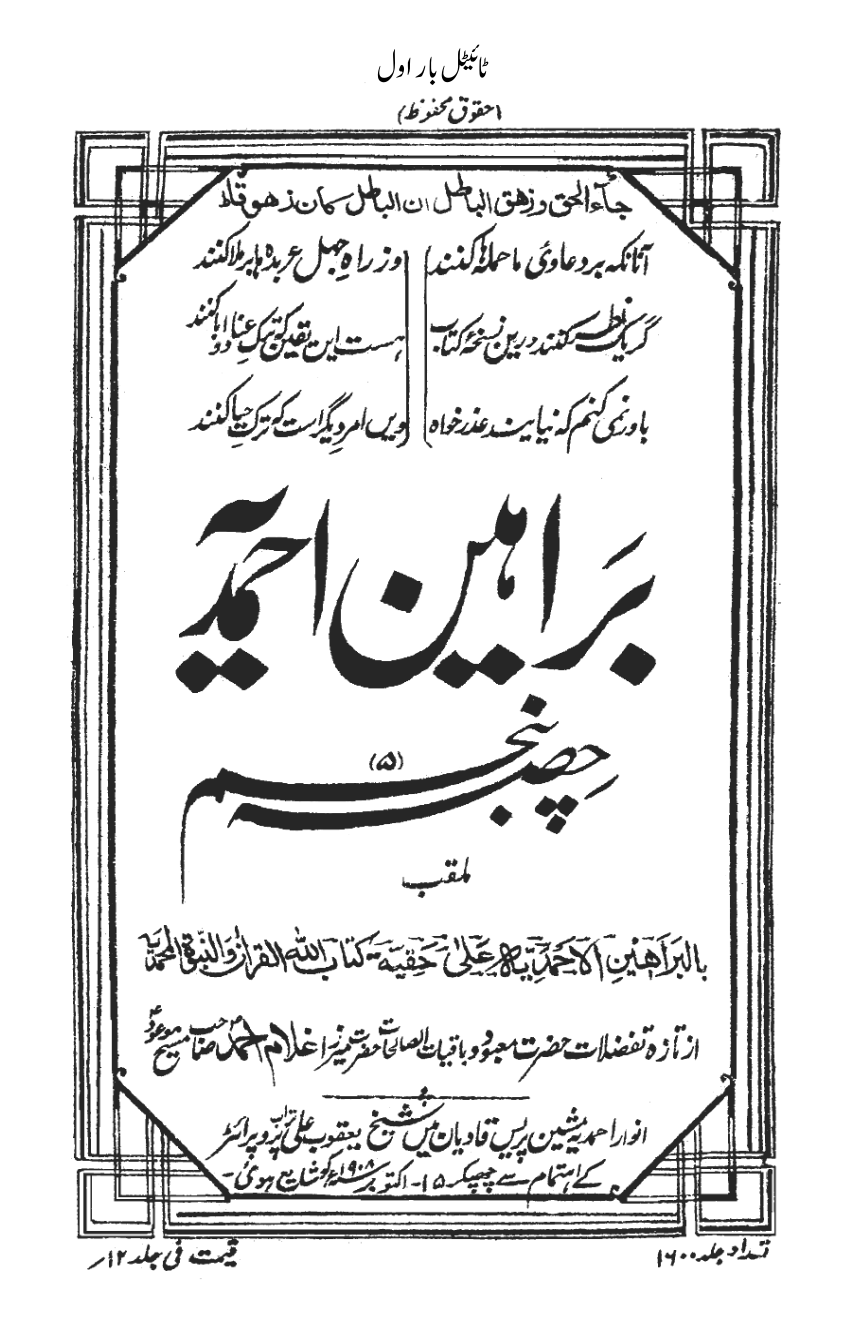 ٹائیٹل بار اول
(حقوق محفوظ)
جآء الحق وزھق الباطل ان الباطل کان زھوقا
آنانکہ بر دعاوئ ما حملہ ہا کنند وز راہِ جہل عربدہ ہا برملا کنند
گر یک نظر کنند درین نسخۂ کتاب ہست این یقین کہ ترکِ عناد و ابا کنند
باور نمی کنم کہ نیایند عذر خواہ ویں امرِ دیگر است کہ ترکِ حیا کنند
بَراہین احمدیہ
حِصہ پنجم
(۵)
ملقب
بالبَرَاھِیْنِ الاَحْمَدِیَّہِ عَلٰی حَقِیَّۃِ کتاب اللہ القرآن والنبوّۃ المحمدیۃ
از تازہ تفضلات حضرت معبود و باقیات الصالحات حضرت میرزا غلام احمد صاحب مسیح موعودؑ
انوار احمدیہ مشین پریس قادیان میں شیخ یعقوب علی تراب پروپرائٹر
کے اہتمام سے چھپکر ۱۵- اکتوبر ۱۹۰۸ء کو شایع ہوئ-
تعداد جلد ۱۶۰۰
قیمت فی جلد ۱۲؍